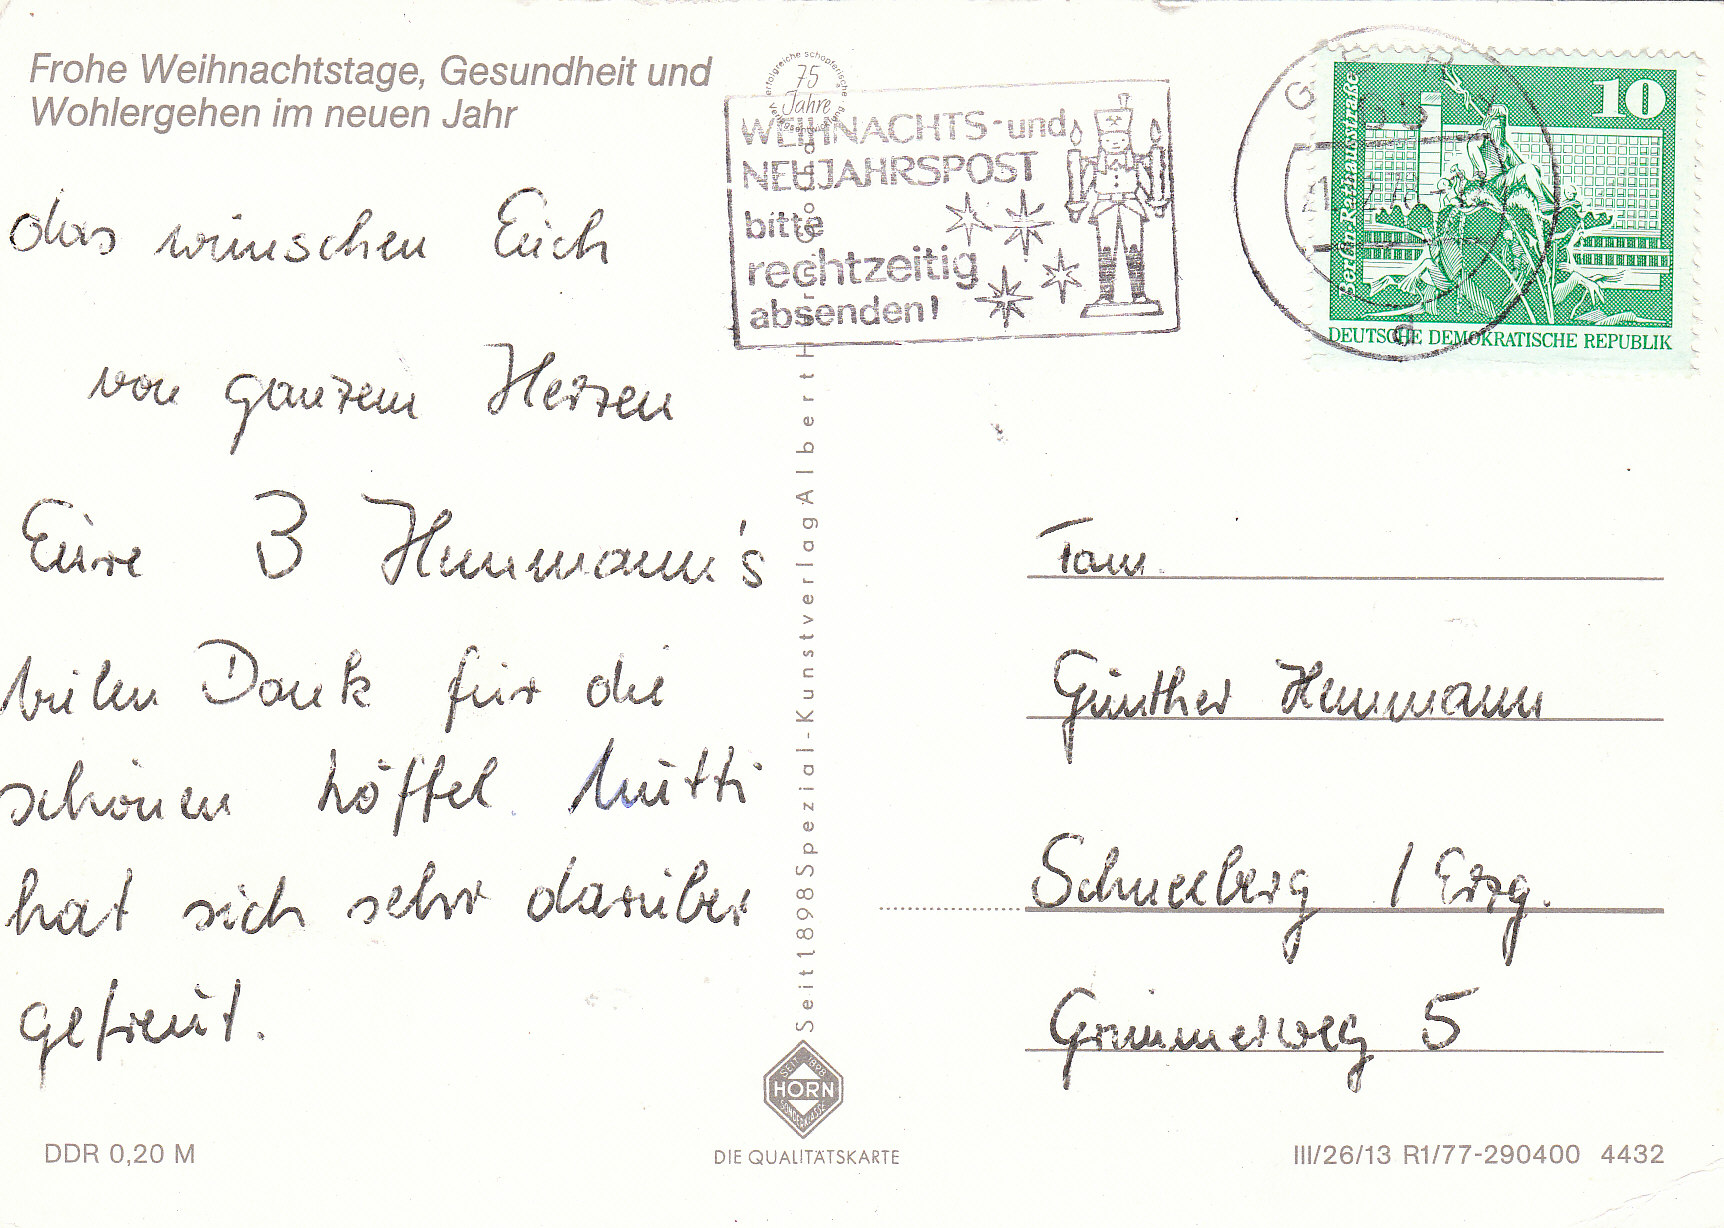 Frohe Weihnachtstage, Gesundheit und
Wohlergehen im neuen Jahr
das wünschen Euch
von ganzem Herzen
Eure 3 Hunmann's
vielen Dank für die
schönen Löffel. Mutti
hat sich sehr darüber
gefreut.
DDR 0,20 M
75
Jahre
WEIHNACHTS- und
NEUJAHRSPOST
bitte
rechtzeitig
absenden!
Seit 1898 Spezial-Kunstverlag Albert Horn
SEIT 1898
HORN
DIE QUALITÄTSKARTE
10
Berlin · Rathausstraße
DEUTSCHE DEMOKRATISCHE REPUBLIK
Fam.
Günther Hunmann
Schneeberg / Erzg.
Grimmerweg 5
III/26/13 R1/77-290400 4432